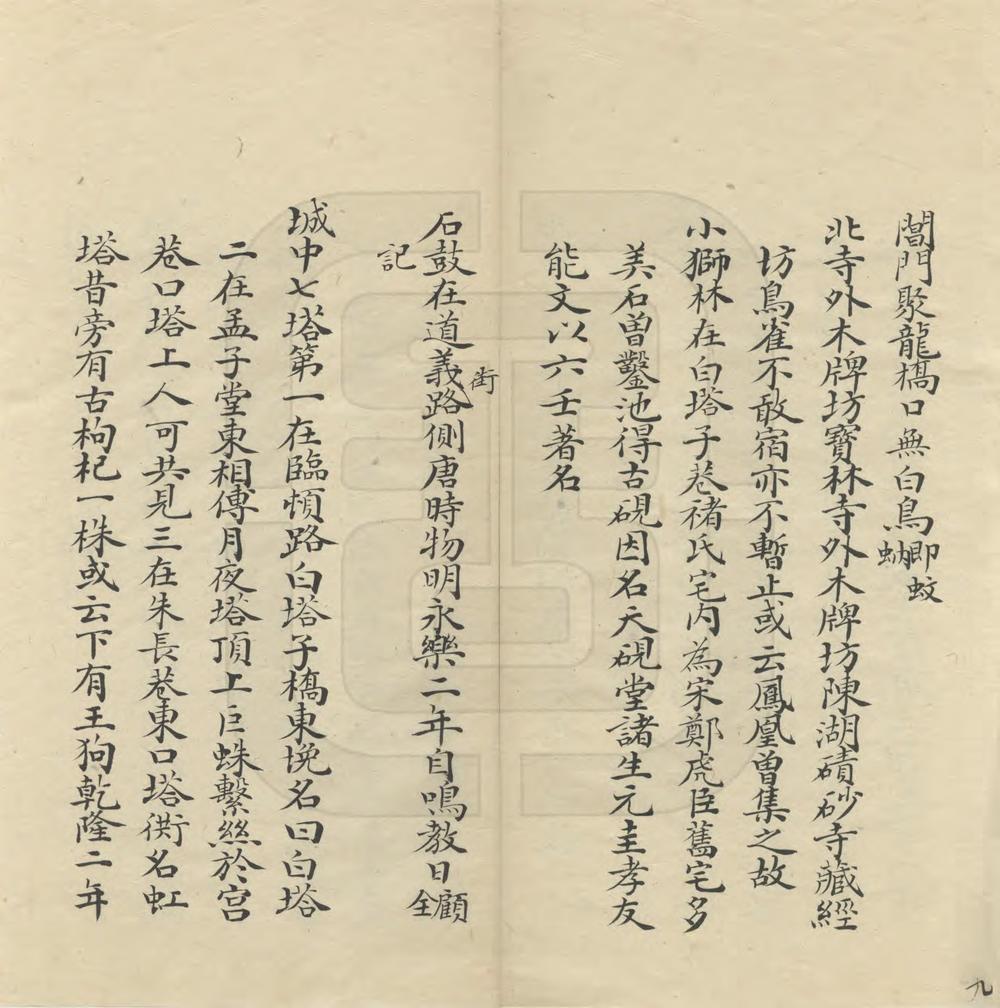 閶門聚龍橋口無白鳥即蚊蚋
北寺外木牌坊寶林寺外木牌坊陳湖磧砂寺藏經
坊鳥雀不敢宿亦不暫止或云鳳凰曾集之故
小獅林在白塔子巷禇氏宅内為宋鄭虎臣舊宅多
美石曽鑿池得古硯因名天硯堂諸生元圭孝友
能文以六壬著名
石鼓在道義路側唐時物明永樂二年自鳴教日顧全
街
記
城中七塔第一在臨頓路白塔子橋東挽名曰白塔
二在孟子堂東相傳月夜塔頂上巨蛛繫絲於宫
巷口塔上人可共見三在朱長巷東口塔衖名虹
塔昔旁有古枸杞一株或云下有玉狗乾隆二年
九